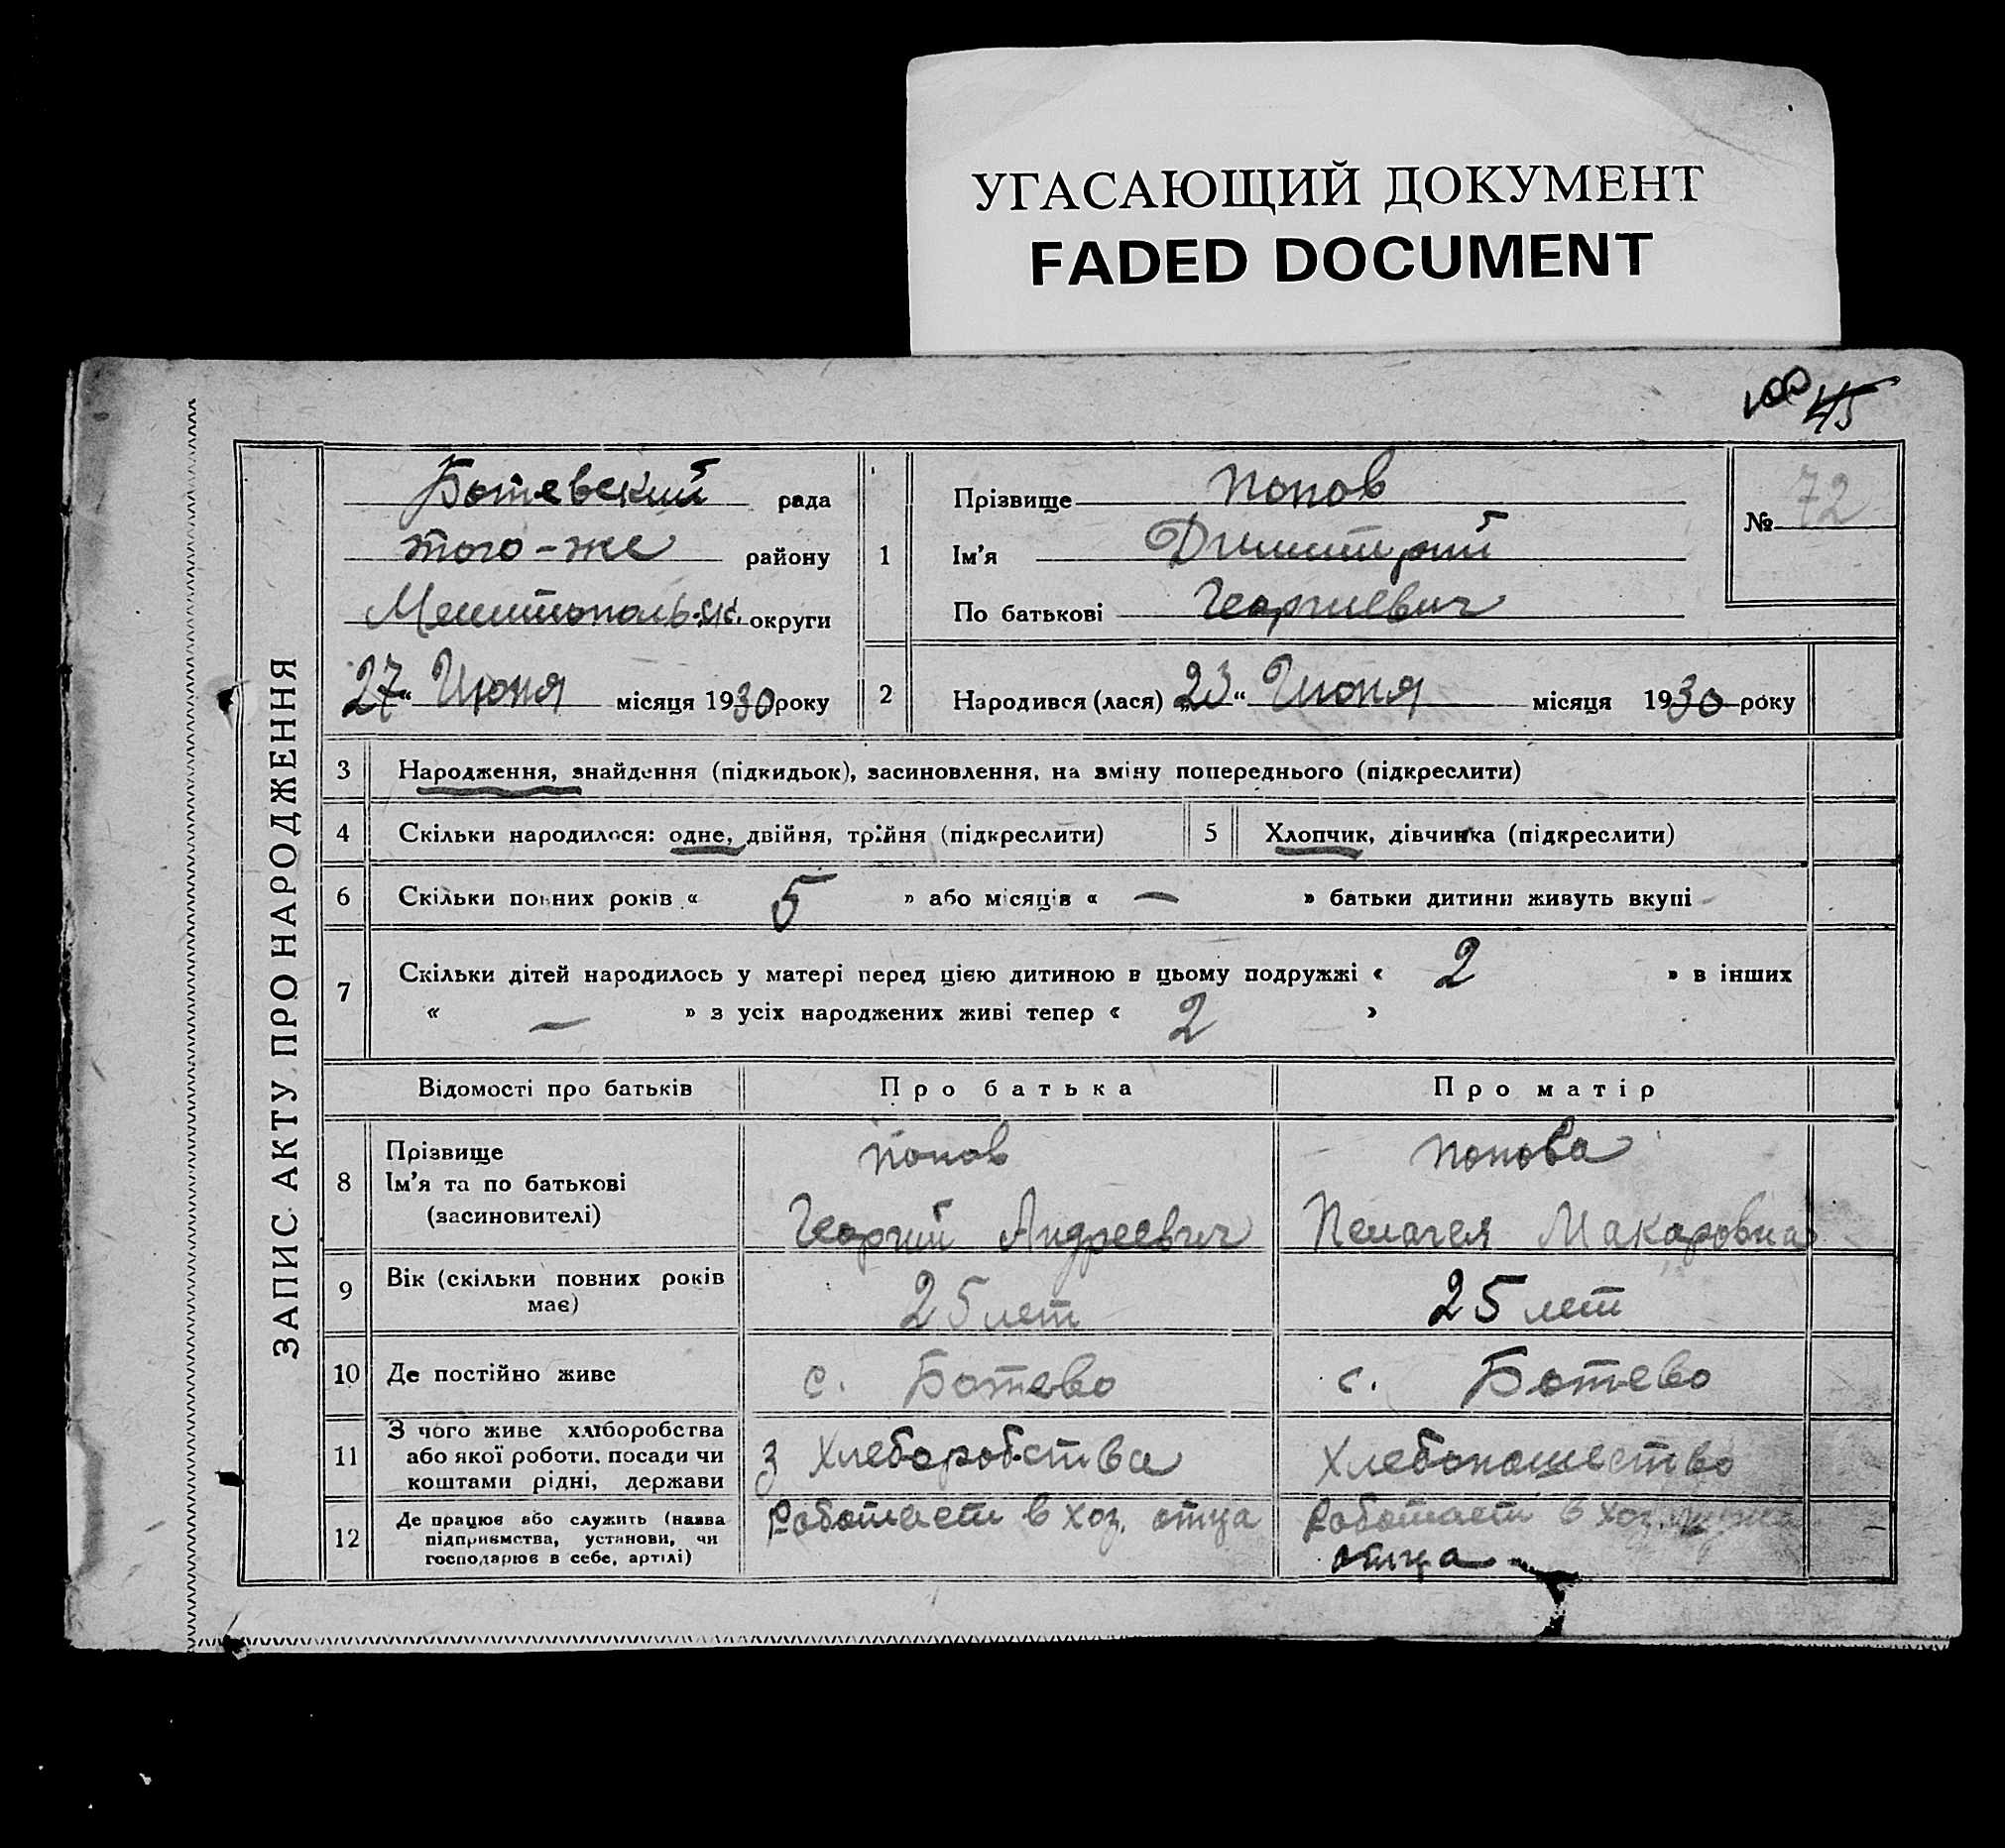 УГАСАЮЩИЙ ДОКУМЕНТ
FADED DOCUMENT
100 45
ЗАПИС АКТУ ПРО НАРОДЖЕННЯ
Ботевский рада
того-же району
Мелитопольск. округи
27 " Июня місяця 1930 року
1
Прізвище Попов
Ім'я Димитрий
По батькові Георгиевич
№ 72
2 Народився (лася) „23 " Июня місяця 1930 року
3 Народження, знайдення (підкидьок), засиновлення, на зміну попереднього (підкреслити)
4 Скільки народилося: одне, двійня, трійня (підкреслити) 5 Хлопчик, дівчинка (підкреслити)
6 Скільки повних років « 5 » або місяців « — » батьки дитини живуть вкупі
7 Скільки дітей народилось у матері перед цією дитиною в цьому подружжі « 2 » в інших
« — » з усіх народжених живі тепер « 2 »
Відомості про батьків Про батька Про матір
8 Прізвище
Ім'я та по батькові
(засиновителі)
Попов
Георгий Андреевич
Попова
Пелагея Макаровна
9 Вік (скільки повних років
має)
25 лет 25 лет
10 Де постійно живе с. Ботево с. Ботево
11 З чого живе хліборобства
або якої роботи, посади чи
коштами рідні, держави
З Хлеборобства Хлебопашество
12 Де працює або служить (назва
підприємства, установи, чи
господарює в себе, артілі)
Работает в хоз. отца
Работает в хоз.
отца